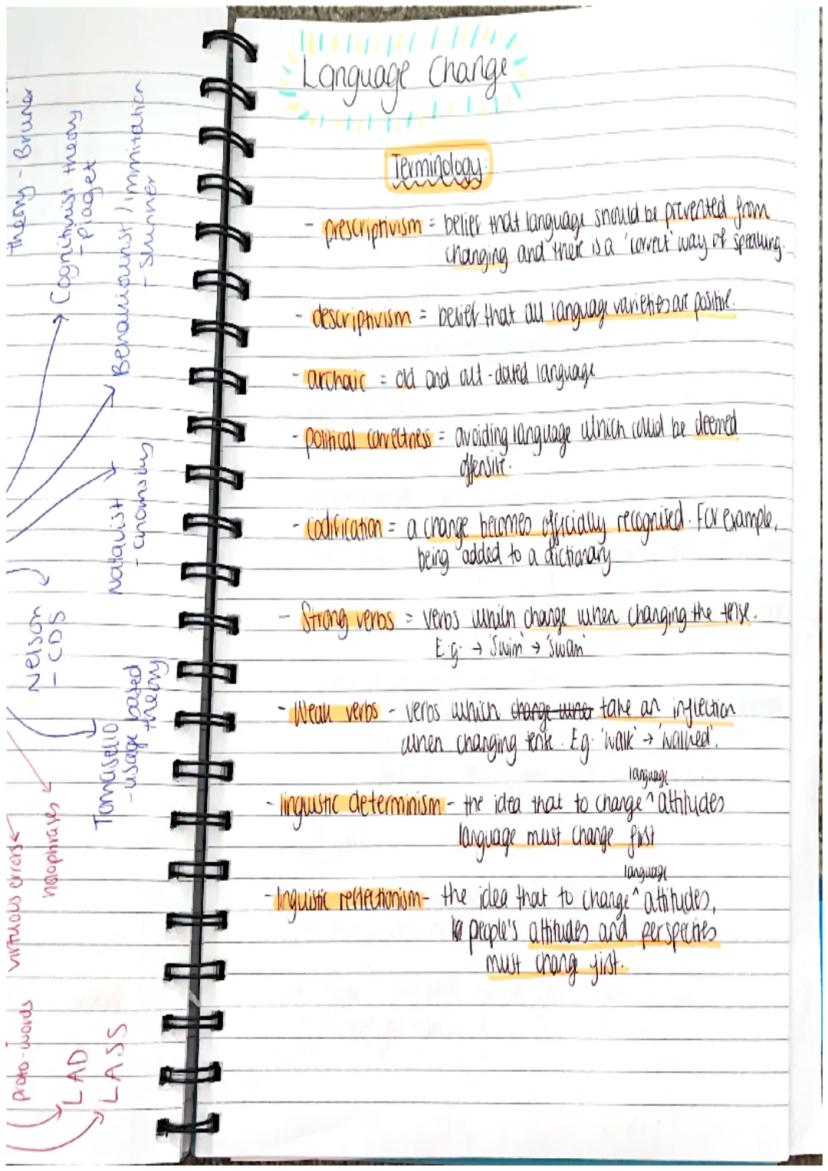 Language Change
Terminology:
- prescriptivism = belief that language should be prevented from
changing and there is a 'correct' way of speaking.
- descriptivism = belief that all language varieties are positive.
- archaic = old and out-dated language
- political correctness = avoiding language which could be deemed
offensive.
- codification = a change becomes officially recognised. For example,
being added to a dictionary
- Strong verbs = verbs which change when changing the tense.
E.g. → 'Swim' → 'swam'
- Weak verbs - verbs which change when take an inflection
when changing tense. E.g. 'walk' → 'walked'.
language
- linguistic determinism - the idea that to change ^ attitudes
language must change first
language
- linguistic reflectionism - the idea that to change ^ attitudes,
people's attitudes and perspecties
must change first.
theory - Bruner
Cognitivist theory
- Piaget
Behaviourist / immitation
- Skinner
Nativist
- Chomsky
Nelson
- CDS
Tomasello
- usage based
theory
holophrases
virtuous errors
proto-words
LAD
LASS